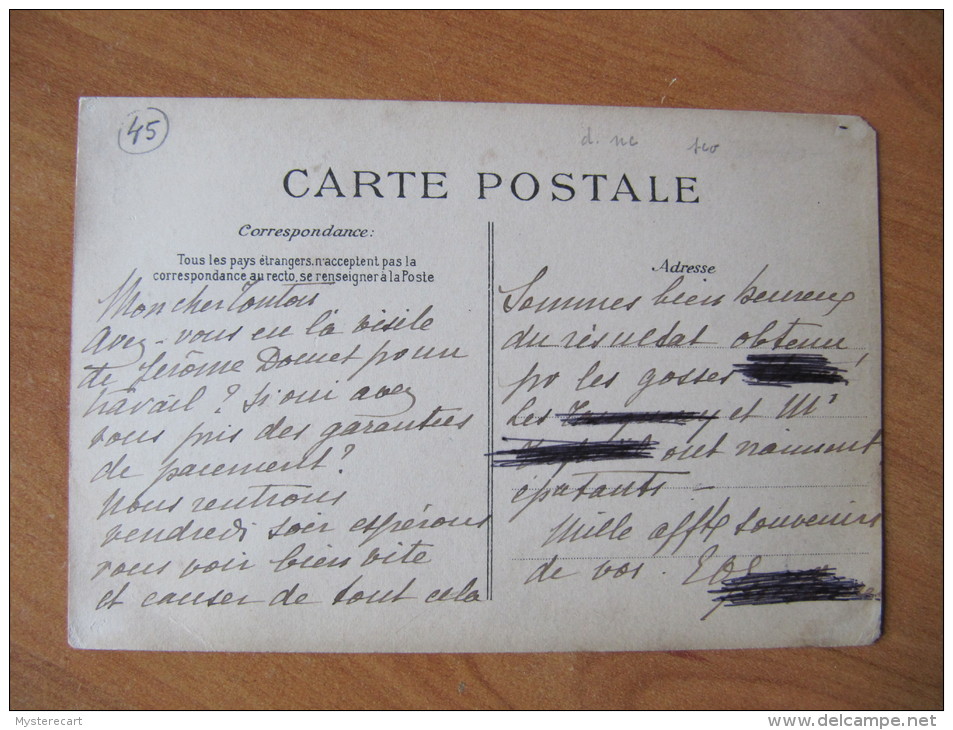 45
CARTE POSTALE
Correspondance:
Tous les pays étrangers n'acceptent pas la
correspondance au recto, se renseigner à la Poste
Mon cher Tontois
Avez-vous eu la visite
de Jérôme Doucet pour un
travail? Si oui avez
vous pris des garanties
de paiement?
Nous rentrons
vendredi soir espérons
vous voir bien vite
et causer de tout cela
Adresse
Sommes bien heureux
du résultat obtenu
pr les gosses
Les et Mr
sont vraiment
épatants -
Mille afftx souvenirs
de vos.
Mysterecart
http://www.delcampe.net